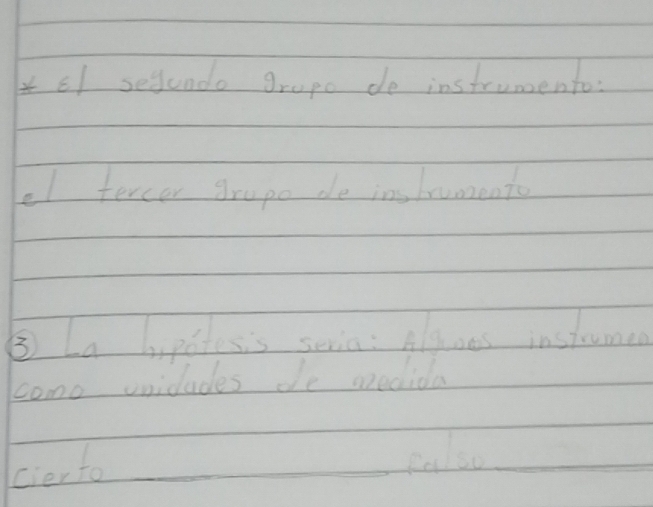 * El segundo grupo de instrumento:
el tercer grupo de instrumento
③ La hipótesis seria: Algunos instrumen
como unidades de medida
cierto falso